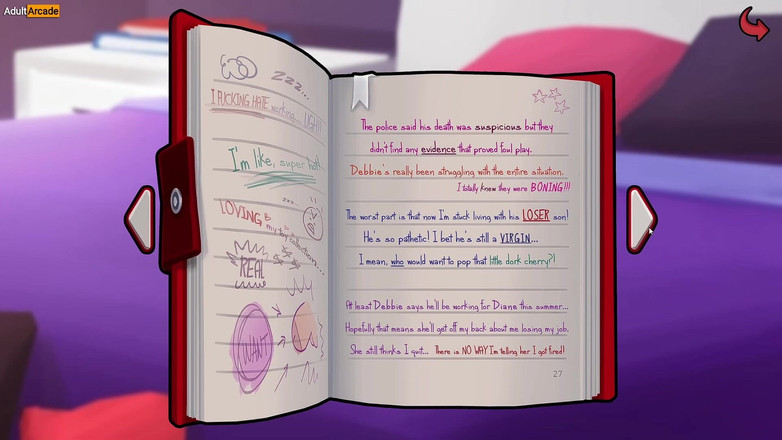 AdultArcade
zzz...
I FUCKING HATE working... UGH!
I'm like, super hot
LOVING
my toy collection...
REAL
WANT
The police said his death was suspicious but they
didn't find any evidence that proved foul play.
Debbie's really been struggling with the entire situation.
I totally knew they were BONING!!!
The worst part is that now I'm stuck living with his LOSER son!
He's so pathetic! I bet he's still a VIRGIN...
I mean, who would want to pop that little dork cherry?!
At least Debbie says he'll be working for Diane this summer...
Hopefully that means she'll get off my back about me losing my job.
She still thinks I quit... There is NO WAY I'm telling her I got fired!
27